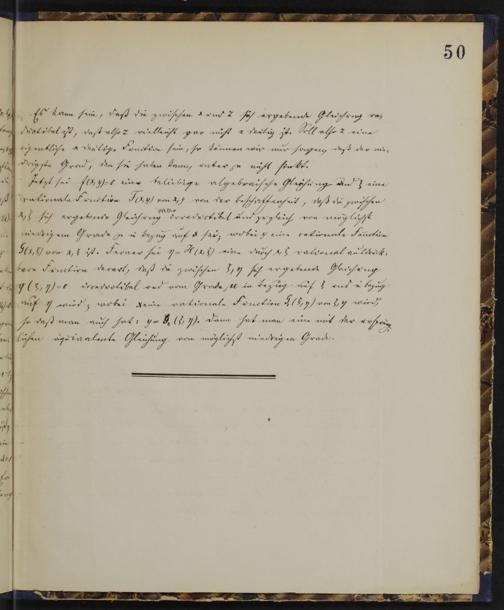 50
Es kann sein, daß die zwischen x und z sich ergebende Gleichung re-
ductibel ist, daß also z vielleicht gar nicht n deutig ist. Soll also z eine
eigentliche n deutige Function sein, so können wir nur sagen, daß der nie-
drigste Grad, den sie haben kann, unter μ nicht sinkt.
Jetzt sei f(x,y)=0 eine beliebige algebraische Gleichung und ξ eine
rationale Function (x,y) von x,y von der Beschaffenheit, daß die zwischen
x, ξ sich ergebende Gleichung irreductibel und zugleich von möglichst
niedrigem Grade μ in bezug auf x sei; wobei y eine rationale Function
(x,ξ) von x, ξ ist. Ferner sei η = (x,ξ) eine durch x, ξ rational ausdrück-
bare Function derart, daß die zwischen ξ, η sich ergebende Gleichung
(ξ, η)=0 irreductibel und vom Grade μ in bezug auf ξ und in bezug
auf η wird; wobei x eine rationale Function (ξ, η) von ξ, η wird
so daß man auch hat: y = (ξ, η). Dann hat man eine mit der ursprüng-
lichen äquivalente Gleichung von möglichst niedrigem Grade.